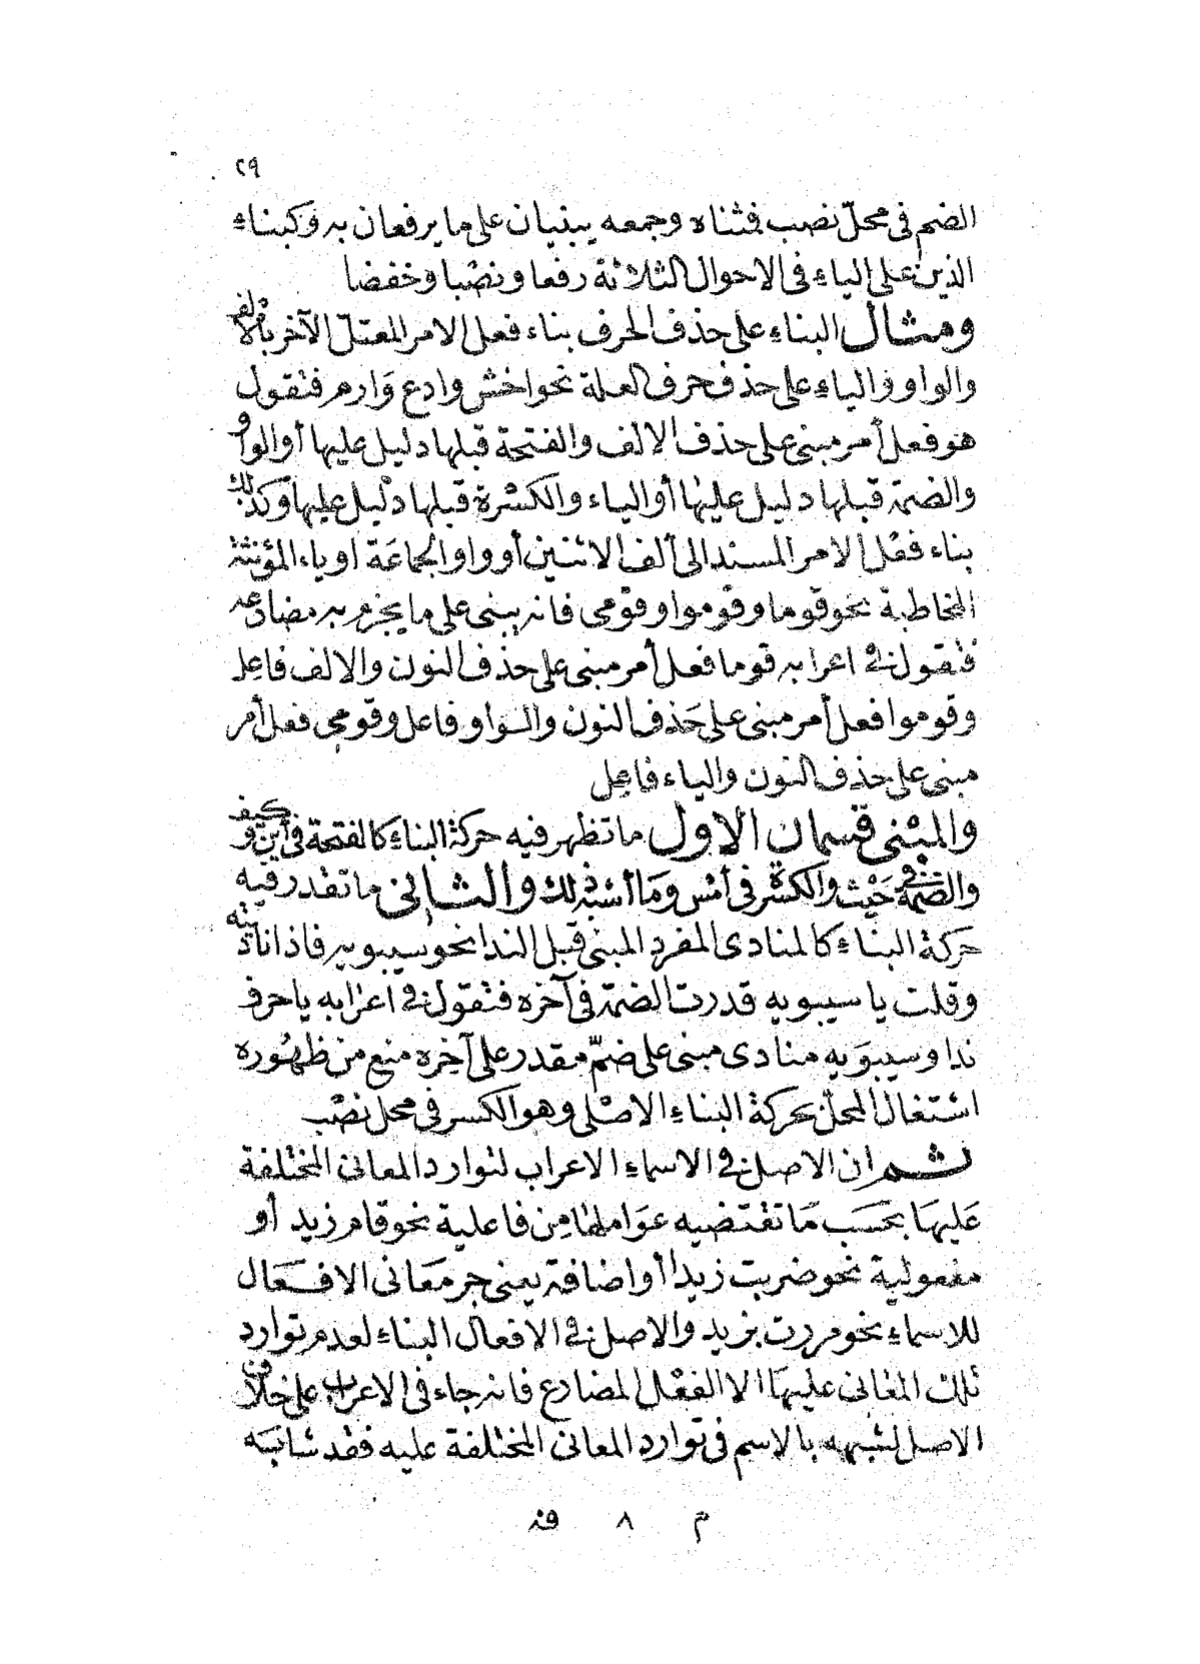 ٢٩
الضم في محلّ نصب فمثناه وجمعه يبنيان على ما يرفعان به وكبناء
الذين على الياء في الاحوال الثلاثة رفعا ونصْبا وخفضا
ومثال البناء على حذف الحرف بناء فعل الامر المعتلّ الآخر بالالف
والواو والياء على حذف حرف العلة نحو اخش وادع وَارم فتقول
هو فعل أمر مبنى على حذف الالف والفتحة قبلها دليل عليها أو الواو
والضمة قبلها دليل عليها أو الياء والكسْرة قبلها دليل عليها وكذلك
بناء فعْل الامر المسند الى ألف الاثنين أو واو الجماعَة او ياء المؤنثة
المخاطبة نحو قوما وقوموا وقومى فانه يبنى على ما يجزم به مضارعه
فتقول في اعرابه قوما فعل أمر مبنى على حذف النون والالف فاعل
وقوموا فعل أمر مبنى على حَذف النون والواو فاعل وقومى فعل أمر
مبنى على حذف النون والياء فاعل
والمبْنى قسمان الاول ما تظهر فيه حركة البناء كالفتحة فى أين وكيف
والضمّة فى حَيْث والكسْرة فى أمْس وَما أشبه ذلك والثانى ما تقدر فيه
حَركة البناء كالمنادى المفرد المبنى قبل الندا نحو سيبويه فاذا ناديته
وقلت يا سيبويه قدرت الضمة فى آخره فتقول فى اعرابه يا حرف
ندا وسيبوَيه منادى مبنى على ضمّ مقدر على آخره منع من ظهُوره
اشتغال المحلّ بحركة البناء الاصْلى وهو الكسر فى محل نصْب
ثم ان الاصل فى الاسماء الاعراب لتوارد المعانى المختلفة
عَليهَا بحَسَب مَا تقتضيه عوَاملها مِن فاعلية نحو قام زيد أو
مفعولية نحو ضربت زيدا أو اضافة يعنى جر مَعانى الافعَال
للاسماء نحو مررت بزيد والاصل فى الافعال البناء لعدم توارد
تلك المعَانى عليهَا الا الفعْل المضارع فانه جاء فى الاعراب على خلاف
الاصل لشبهه بالاسم فى توارد المعانى المختلفة عليه فقد شابَه
م ٨ فد